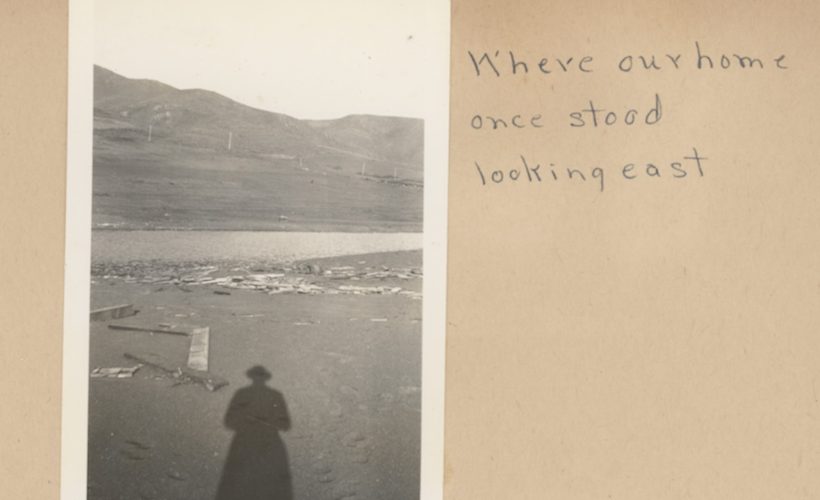 Where our home
once stood
looking east